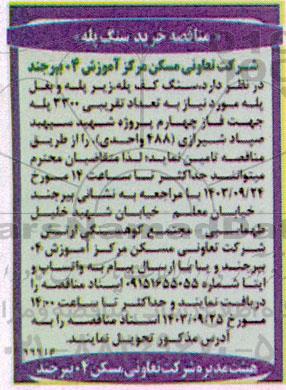 مناقصه خرید سنگ پله
شرکت تعاونی مسکن مرکز آموزش ۰۴ بیرجند
در نظر دارد،سنگ کف پله زیر پله و بغل
پله مورد نیاز به تعداد تقریبی ۳۳۰۰ پله
جهت فاز چهارم پروژه شهید سپهبد
صیاد شیرازی (۲۸۸ واحدی) را از طریق
مناقصه تامین نماید؛ لذا متقاضیان محترم
میتوانند حداکثر تا ساعت ۱۴ مورخ
۱۴۰۳/۰۹/۲۴ با مراجعه به نشانی بیرجند
خیابان معلم - خیابان شهید خلیل
طهماسبی - مجتمع کوهسنگی از بین
شرکت تعاونی مسکن مرکز آموزش ۰۴
بیرجند و یا با ارسال پیام به واتساپ و
ایتا شماره ۰۹۱۵۱۶۵۵۰۵۵ اسناد مناقصه را
دریافت نمایند و حداکثر تا ساعت ۱۴:۰۰
مورخ ۱۴۰۳/۰۹/۲۵ اسناد مناقصه را به
آدرس مذکور تحویل نمایند.
هیئت مدیره شرکت تعاونی مسکن ۰۴ بیرجند